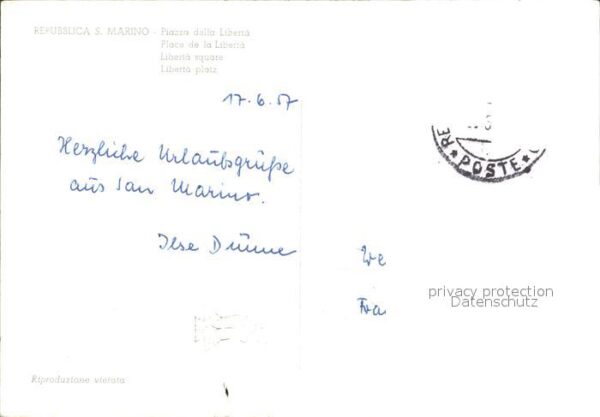 REPUBBLICA S. MARINO - Piazza della Libertà
Place de la Libertà
Libertà square
Libertà platz
17.6.57
Herzliche Urlaubsgrüße
aus San Marino.
Ilse Dümme
RE * POSTE *
We
Fra
privacy protection
Datenschutz
Riproduzione vietata